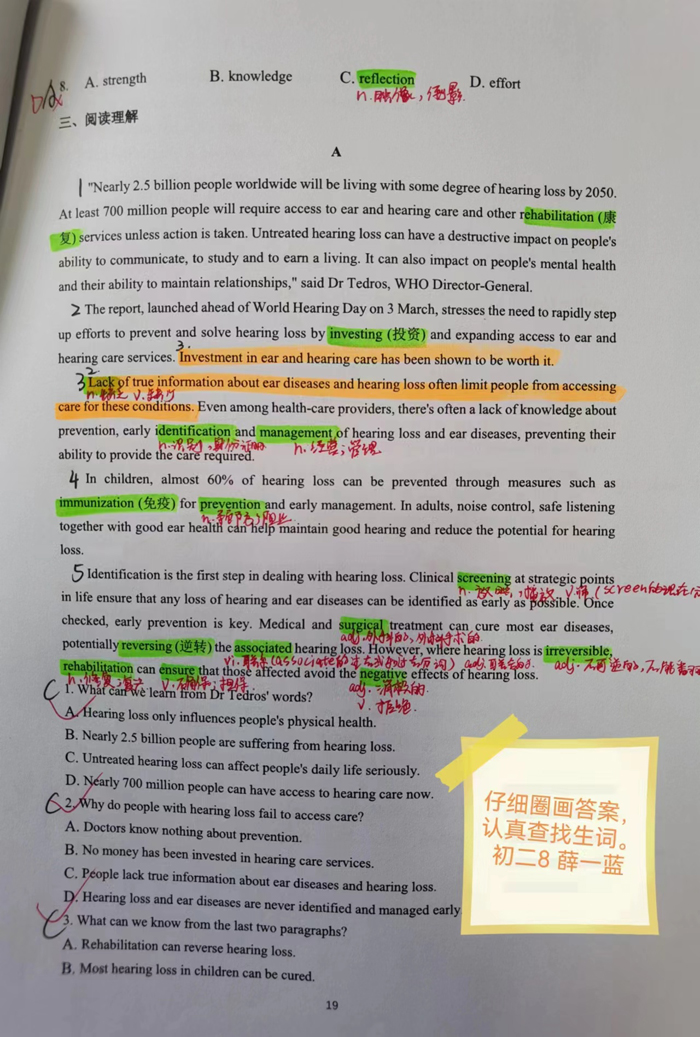 8. A. strength B. knowledge C. reflection D. effort
三、阅读理解
A
1 "Nearly 2.5 billion people worldwide will be living with some degree of hearing loss by 2050.
At least 700 million people will require access to ear and hearing care and other rehabilitation (康
复) services unless action is taken. Untreated hearing loss can have a destructive impact on people's
ability to communicate, to study and to earn a living. It can also impact on people's mental health
and their ability to maintain relationships," said Dr Tedros, WHO Director-General.
2 The report, launched ahead of World Hearing Day on 3 March, stresses the need to rapidly step
up efforts to prevent and solve hearing loss by investing (投资) and expanding access to ear and
3.
hearing care services. Investment in ear and hearing care has been shown to be worth it.
2
3 Lack of true information about ear diseases and hearing loss often limit people from accessing
care for these conditions. Even among health-care providers, there's often a lack of knowledge about
prevention, early identification and management of hearing loss and ear diseases, preventing their
n.识别;身份证明 n.经营;管理
ability to provide the care required.
4 In children, almost 60% of hearing loss can be prevented through measures such as
immunization (免疫) for prevention and early management. In adults, noise control, safe listening
together with good ear health can help maintain good hearing and reduce the potential for hearing
loss.
5 Identification is the first step in dealing with hearing loss. Clinical screening at strategic points
in life ensure that any loss of hearing and ear diseases can be identified as early as possible. Once
checked, early prevention is key. Medical and surgical treatment can cure most ear diseases,
adj.外科的,外科手术的
potentially reversing (逆转) the associated hearing loss. However, where hearing loss is irreversible,
rehabilitation can ensure that those affected avoid the negative effects of hearing loss.
adj.消极的
v.拒绝.
C 1. What can we learn from Dr Tedros' words?
A. Hearing loss only influences people's physical health.
B. Nearly 2.5 billion people are suffering from hearing loss.
C. Untreated hearing loss can affect people's daily life seriously.
D. Nearly 700 million people can have access to hearing care now.
C 2. Why do people with hearing loss fail to access care?
A. Doctors know nothing about prevention.
B. No money has been invested in hearing care services.
C. People lack true information about ear diseases and hearing loss.
D. Hearing loss and ear diseases are never identified and managed early
C 3. What can we know from the last two paragraphs?
A. Rehabilitation can reverse hearing loss.
B. Most hearing loss in children can be cured.
19
仔细圈画答案，
认真查找生词。
初二8 薛一蓝